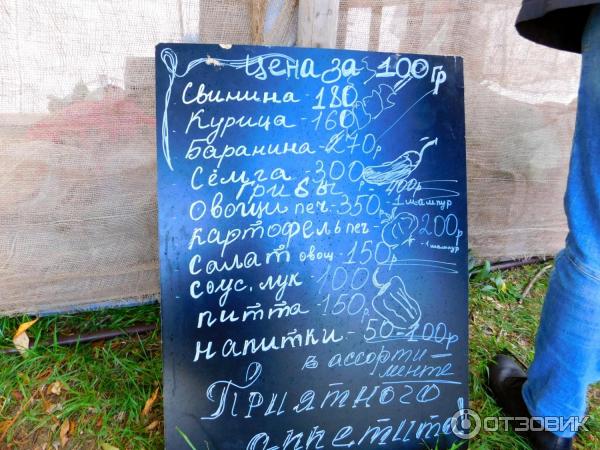 Цена за 100 гр
Свинина - 180
Курица - 160
Баранина - 270р
Сёмга - 300
Грибы - 400р
Овощи печ - 350р - 1 шампур
Картофель печ - 200р - 1 шампур
Салат овощ - 150р
Соус, лук - 100
питта - 150р
напитки - 50-100р
в ассорти-
менте
Приятного
аппетита!
ОТЗОВИК